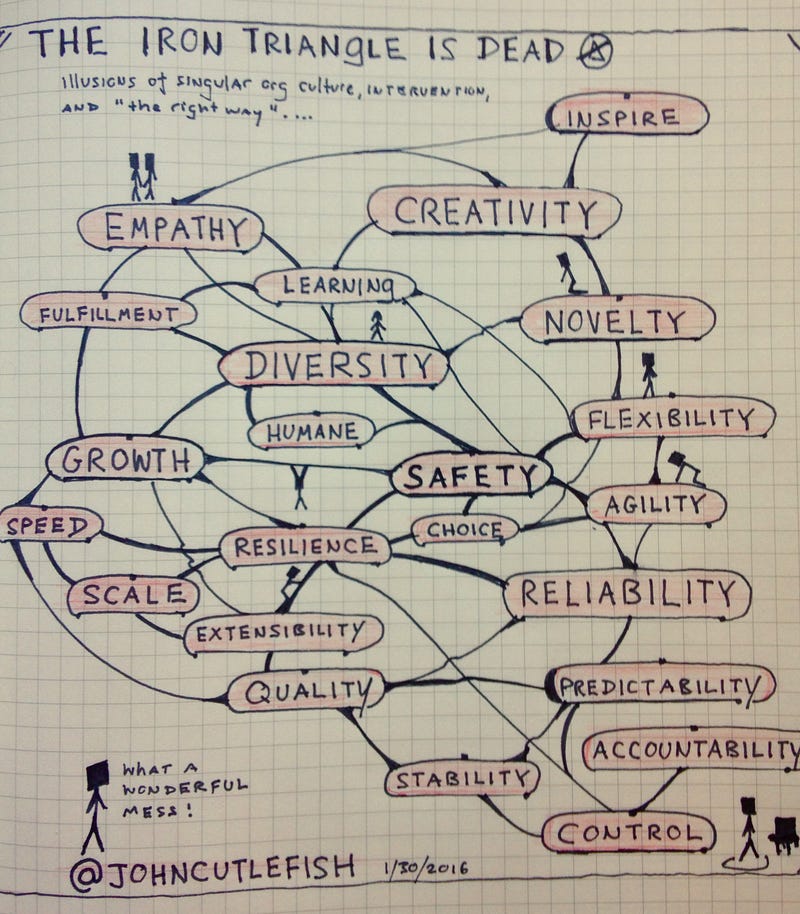 THE IRON TRIANGLE IS DEAD
ILLUSIONS of SINGULAR org culture, INTERVENTION,
AND "the right way"....
INSPIRE
EMPATHY
CREATIVITY
LEARNING
FULFILLMENT
NOVELTY
DIVERSITY
HUMANE
FLEXIBILITY
GROWTH
SAFETY
AGILITY
SPEED
CHOICE
RESILIENCE
SCALE
RELIABILITY
EXTENSIBILITY
QUALITY
PREDICTABILITY
ACCOUNTABILITY
STABILITY
CONTROL
WHAT A
WONDERFUL
MESS!
@JOHNCUTLEFISH 1/30/2016